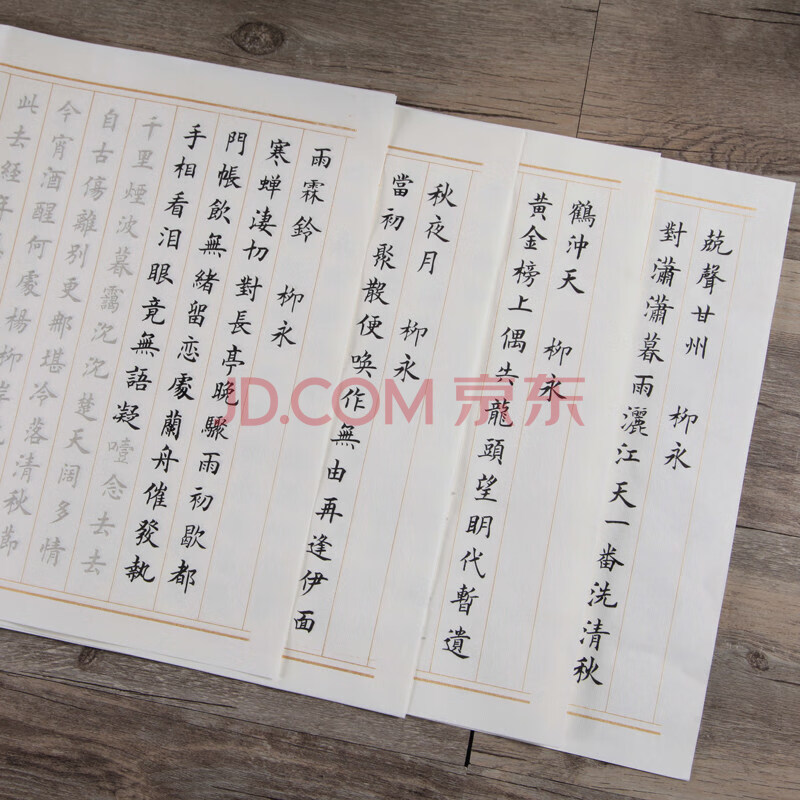 聲甘州 柳永
對瀟瀟暮雨灑江天一番洗清秋
鶴沖天 柳永
黃金榜上偶失龍頭望明代暫遺
秋夜月 柳永
當初聚散便喚作無由再逢伊面
雨霖鈴 柳永
寒蝉淒切對長亭晚驟雨初歇都
門帳飲無緒留恋處蘭舟催發執
手相看泪眼竟無語凝噎念去去
千里煙波暮靄沉沉楚天闊多情
自古傷離別更那堪冷落清秋節
今宵酒醒何處楊柳岸
此去經年
JD.COM 京东